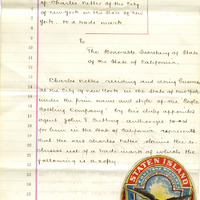 of Charles Vetter of the City
of New York in the State of New
York, to a trade mark.
To
The Honorable Secretary of State
of the State of California.
Charles Vetter residing and doing business
at the City of New York in the State of New York
under the firm name and style of "the Eagle
Bottling Company" by his duly appointed
agent John F. Cutting authorized to act
for him in the State of California represents
that he the said Charles Vetter claims the
use of a trade mark of which the
following is a copy.
STATEN ISLAND